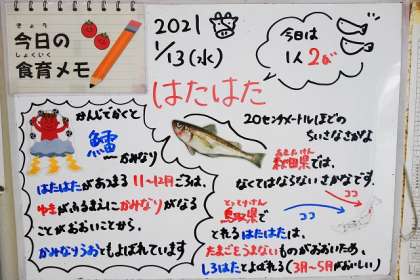 きょう
今日の
しょくいく
食育メモ
2021
1/13(水)
今日は
1人2び
はたはた
かんじでかくと
鱩
かみなり
はたはたがあつまる11〜12月ごろは、
ゆきがふるまえにかみなりがなる
ことがおおいことから、
かみなりうおともよばれています
20センチメートルほどの
ちいさなさかな
あきたけん
秋田県では、
なくてはならないさかなです。
ココ
とっとりけん
鳥取県で
ココ
とれるはたはたは、
たまごをうまないものがおおいため、
しろはたとよばれる(3月〜5月がおいしい)